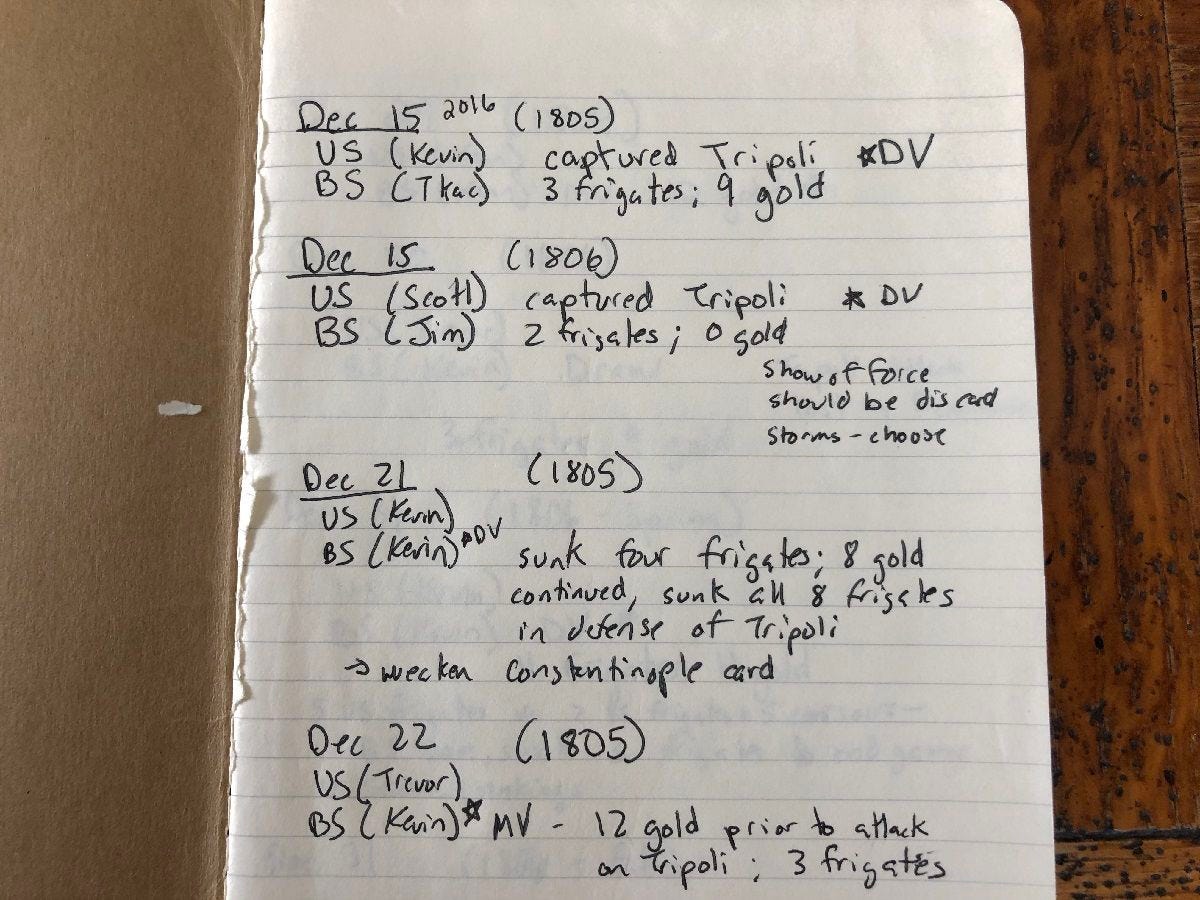 Dec 15 2016 (1805)
US (Kevin) captured Tripoli ★DV
BS (Tkac) 3 frigates; 9 gold
Dec 15 (1806)
US (Scott) captured Tripoli ★ DV
BS (Jim) 2 frigates; 0 gold
Show of Force
should be discard
Storms - choose
Dec 21 (1805)
US (Kevin)
BS (Kevin) ★DV sunk four frigates; 8 gold
continued, sunk all 8 frigates
in defense of Tripoli
→ wecken Constantinople card
Dec 22 (1805)
US (Trevor)
BS (Kevin) ★ MV - 12 gold prior to attack
on Tripoli; 3 frigates